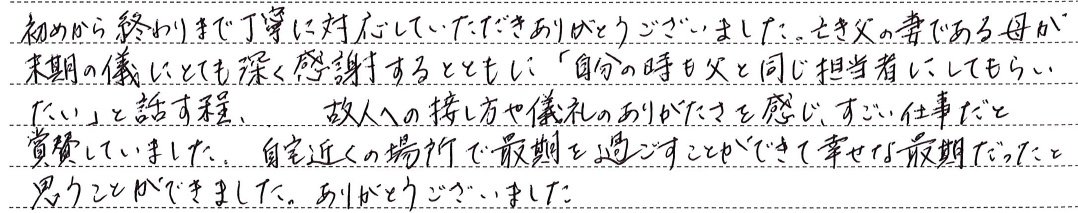 初めから終わりまで丁寧に対応していただきありがとうございました。亡き父の妻である母が
末期の儀にとても深く感謝するとともに「自分の時も父と同じ担当者にしてもらい
たい」と話す程、 故人への接し方や儀礼のありがたさを感じ、すごい仕事だと
賞賛していました。自宅近くの場所で最期を過ごすことができて幸せな最期だったと
思うことができました。ありがとうございました